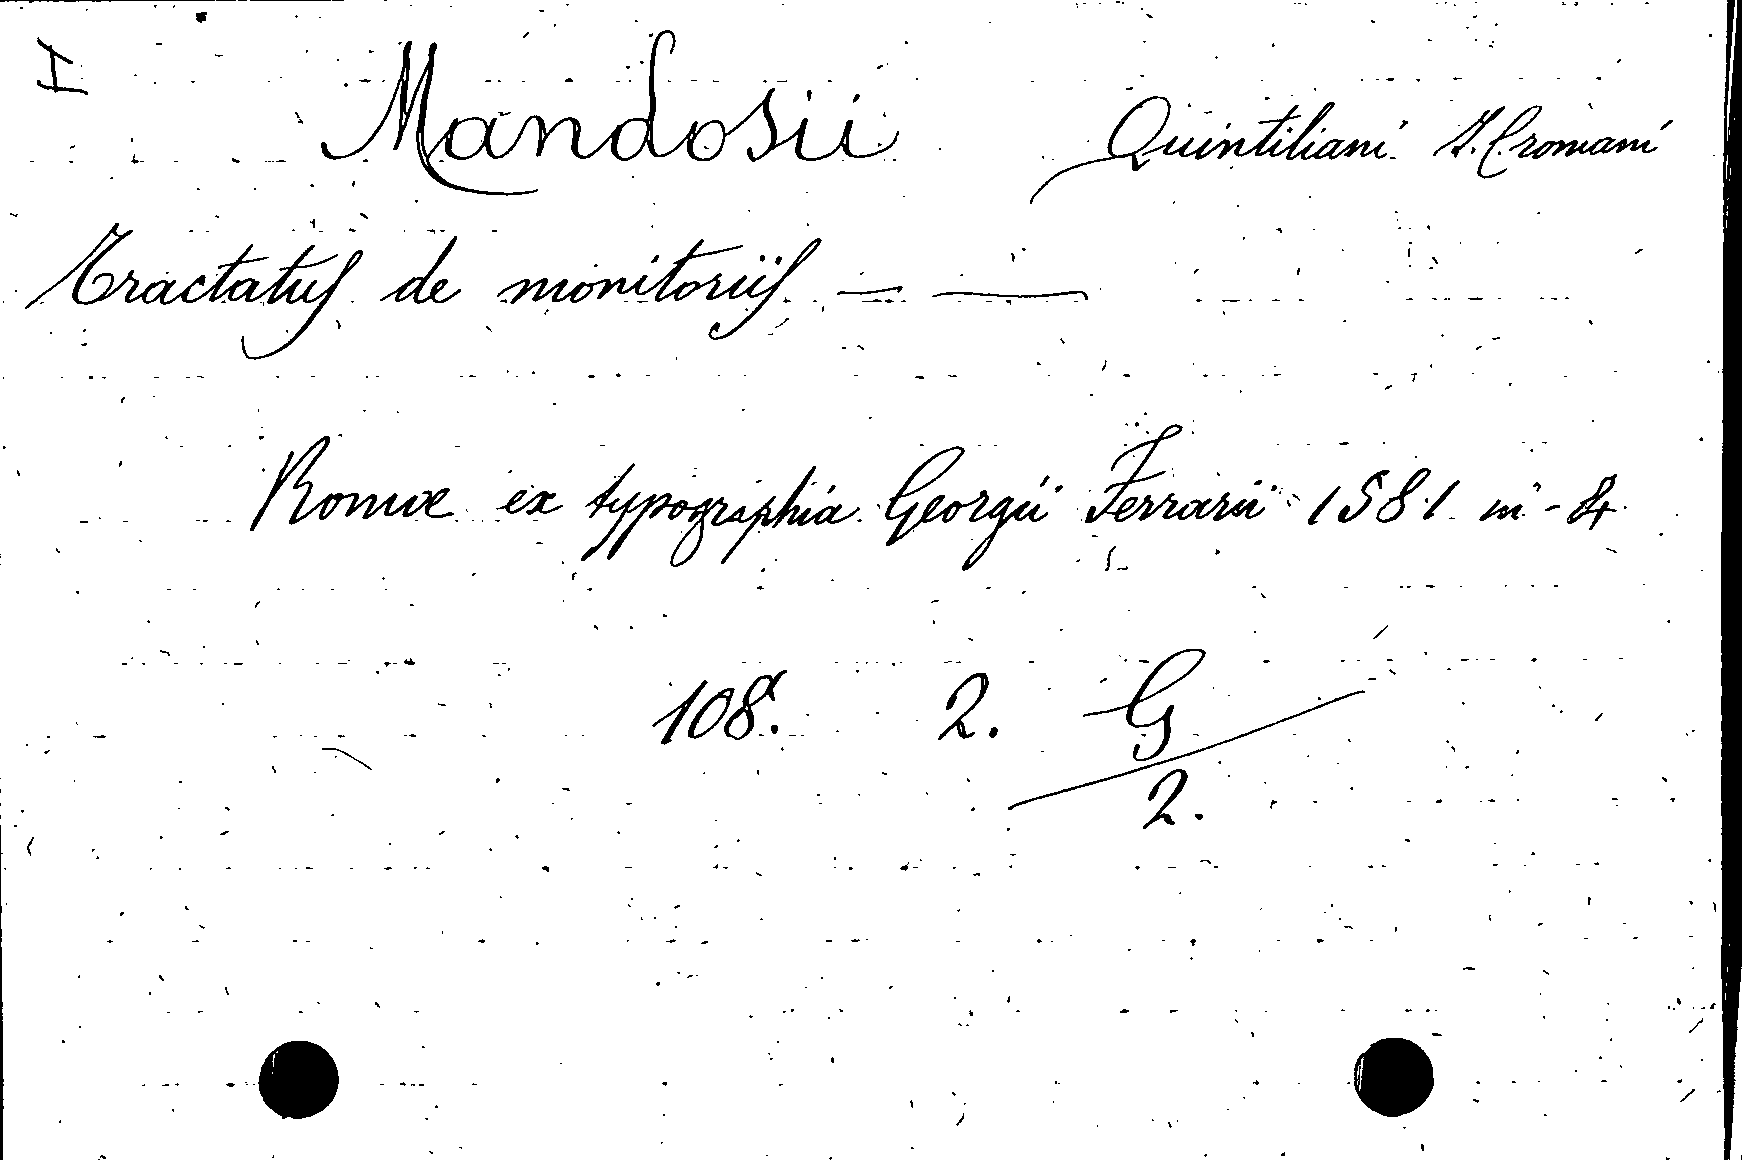 I
Mandosii Quintiliani J. C. romani
Tractatus de monitoriis — —
Romae ex typographia Georgii Ferrarii 1581 in-4
108. 2. G
2.